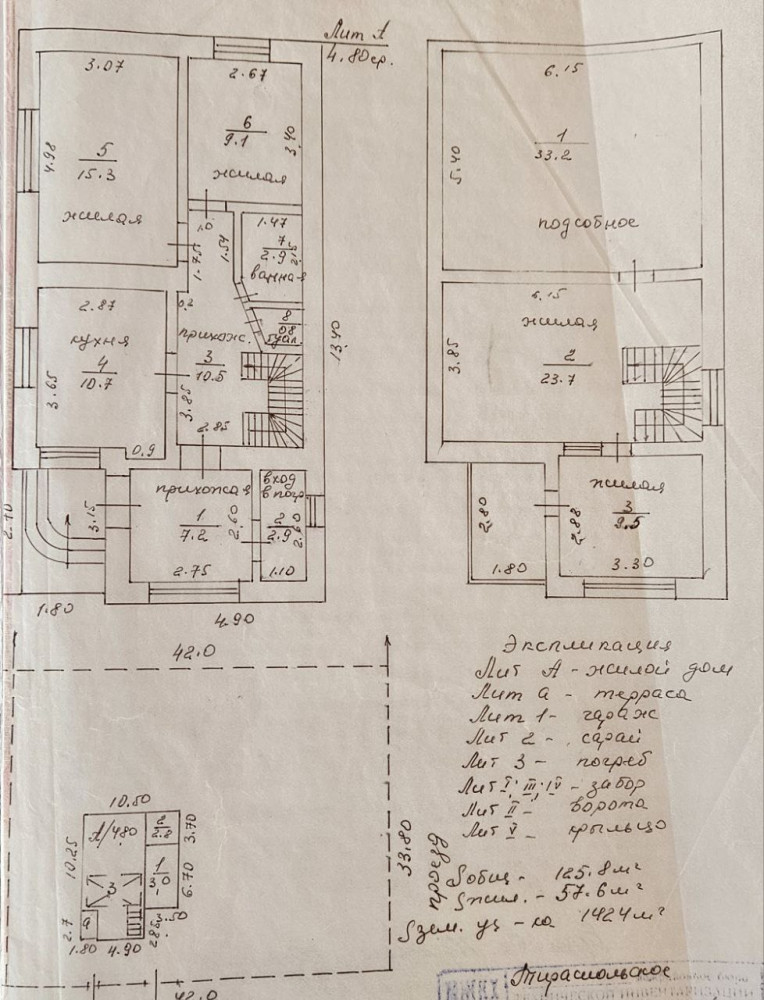 Лит А
4.80 ср.
3.07
4.98
5
15.3
жилая
2.67
6
9.1
3.40
жилая
1.0
1.75
1.54
1.47
7
2.9
ванная
0.2
8
0.8
туал.
13.40
2.87
кухня
4
10.7
3.65
0.9
прихож.
3
10.5
3.85
2.85
прихожая
1
7.2
2.60
2.75
3.15
вход
в погр.
2
2.9
2.60
1.10
1.80
4.90
6.15
5.40
1
33.2
подсобное
6.15
жилая
3.85
2
23.7
жилая
3
9.5
2.88
3.30
2.80
1.80
42.0
10.50
А/480
10.25
2
2.8
3.70
1
6.70
3
а
2.7
1.80
4.90
33.80
проезд
42.0
Экспликация
Лит А - жилой дом
Лит а - терраса
Лит 1 - гараж
Лит 2 - сарай
Лит 3 - погреб
Лит I; III; IV - забор
Лит II - ворота
Лит V - крыльцо
Sобщ - 125.8 м²
Sжил. - 57.6 м²
Sзем. уч - ка 1424 м²
Тираспольское